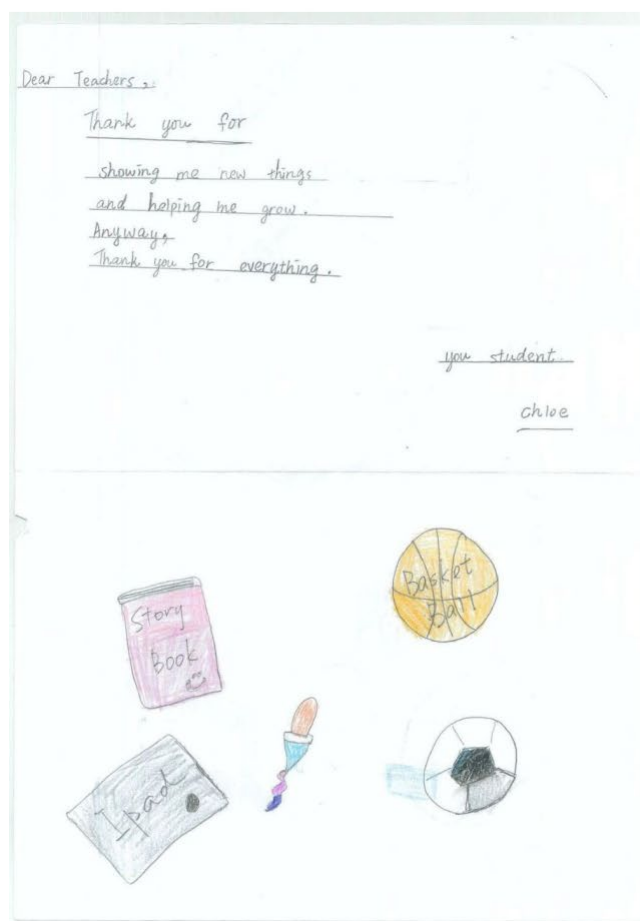 Dear Teachers,
Thank you for
showing me new things
and helping me grow.
Anyway,
Thank you for everything.
you student
chloe
Basket
Ball
Story
Book
Ipad